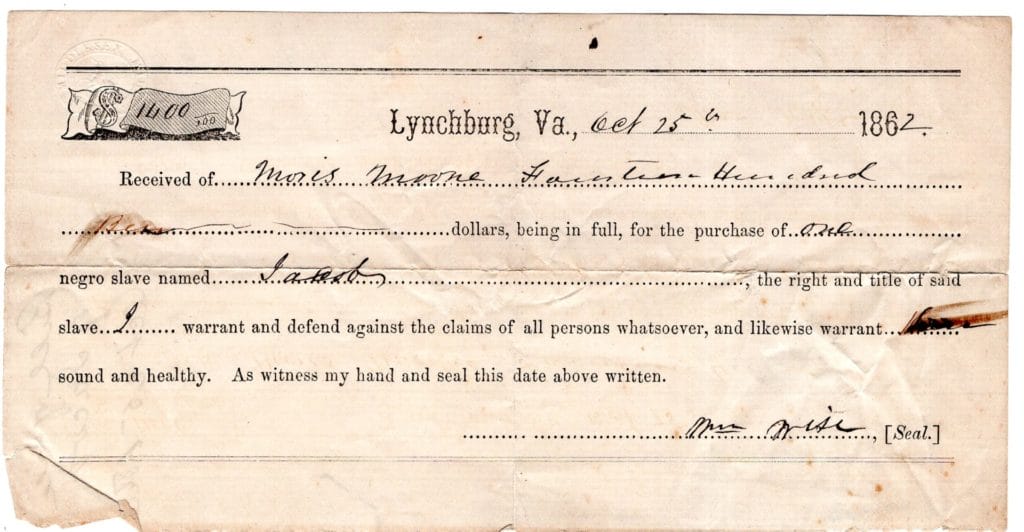 $ 1400/100
Lynchburg, Va., Oct 25th 1862.
Received of Moris Moone Fourteen Hundred
dollars, being in full, for the purchase of one
negro slave named Jacob, the right and title of said
slave I warrant and defend against the claims of all persons whatsoever, and likewise warrant
sound and healthy. As witness my hand and seal this date above written.
Wm Wise, [Seal.]